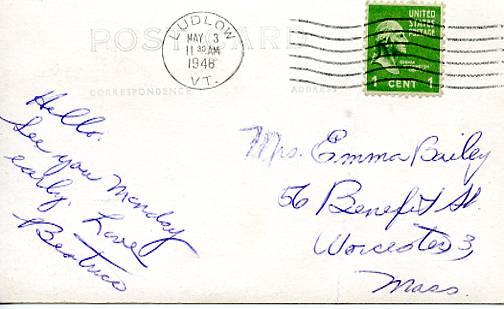 POST CARD
LUDLOW
MAY 3
11 30 AM
1948
VT.
UNITED
STATES
POSTAGE
1 CENT 1
CORRESPONDENCE
ADDRESS
Hello.
See you Monday
early. Love
Beatrice
Mrs. Emma Bailey
56 Benefit St.
Worcester 3,
Mass.